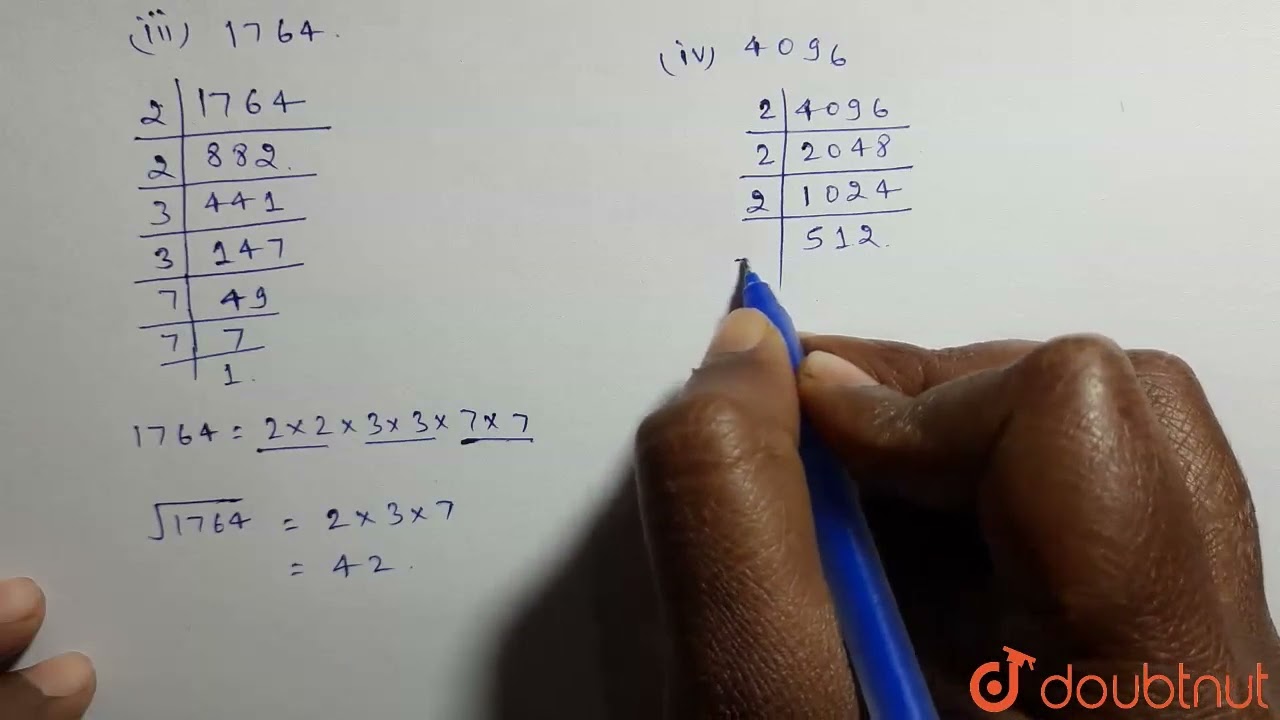 (iii) 1764.
2 | 1764
2 | 882.
3 | 441
3 | 147
7 | 49
7 | 7
1.
1764 = 2×2×3×3×7×7
√1764 = 2×3×7
= 42.
(iv) 4096
2 | 4096
2 | 2048
2 | 1024
512.
doubtnut